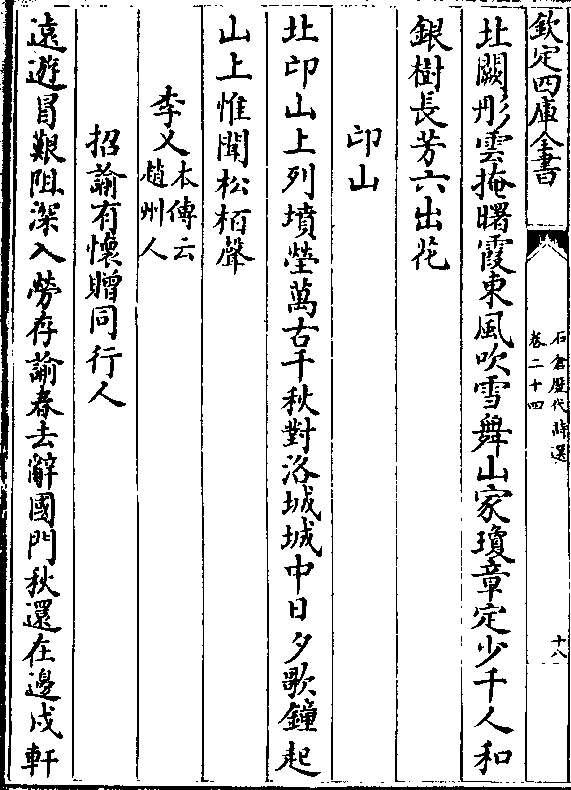 欽定四庫全書
石倉歷代詩選
卷二十四
十八
北闕彤雲掩曙霞東風吹雪舞山家瓊章定少千人和
銀樹長芳六出花
邙山
北邙山上列墳塋萬古千秋對洛城城中日夕歌鐘起
山上惟聞松栢聲
李乂
本傳云
趙州人
招諭有懷贈同行人
遠遊冒艱阻深入勞存諭春去辭國門秋還在邊戍軒